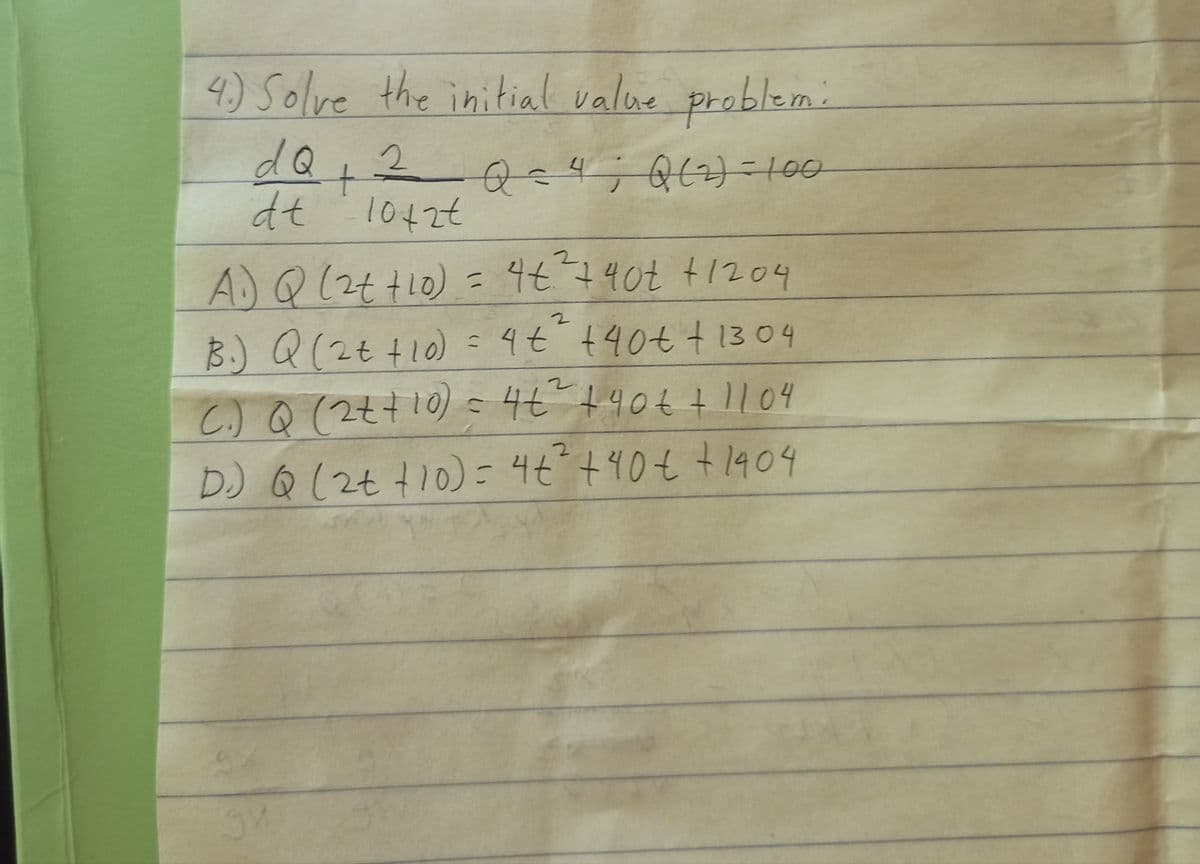 4.) Solve the initial value problem:
dQ/dt + 2/(10+2t) Q = 4 ; Q(2) = 100
A.) Q (2t +10) = 4t² + 40t + 1204
B.) Q (2t +10) = 4t² + 40t + 1304
C.) Q (2t + 10) = 4t² + 40t + 1104
D.) Q (2t +10) = 4t² + 40t + 1404